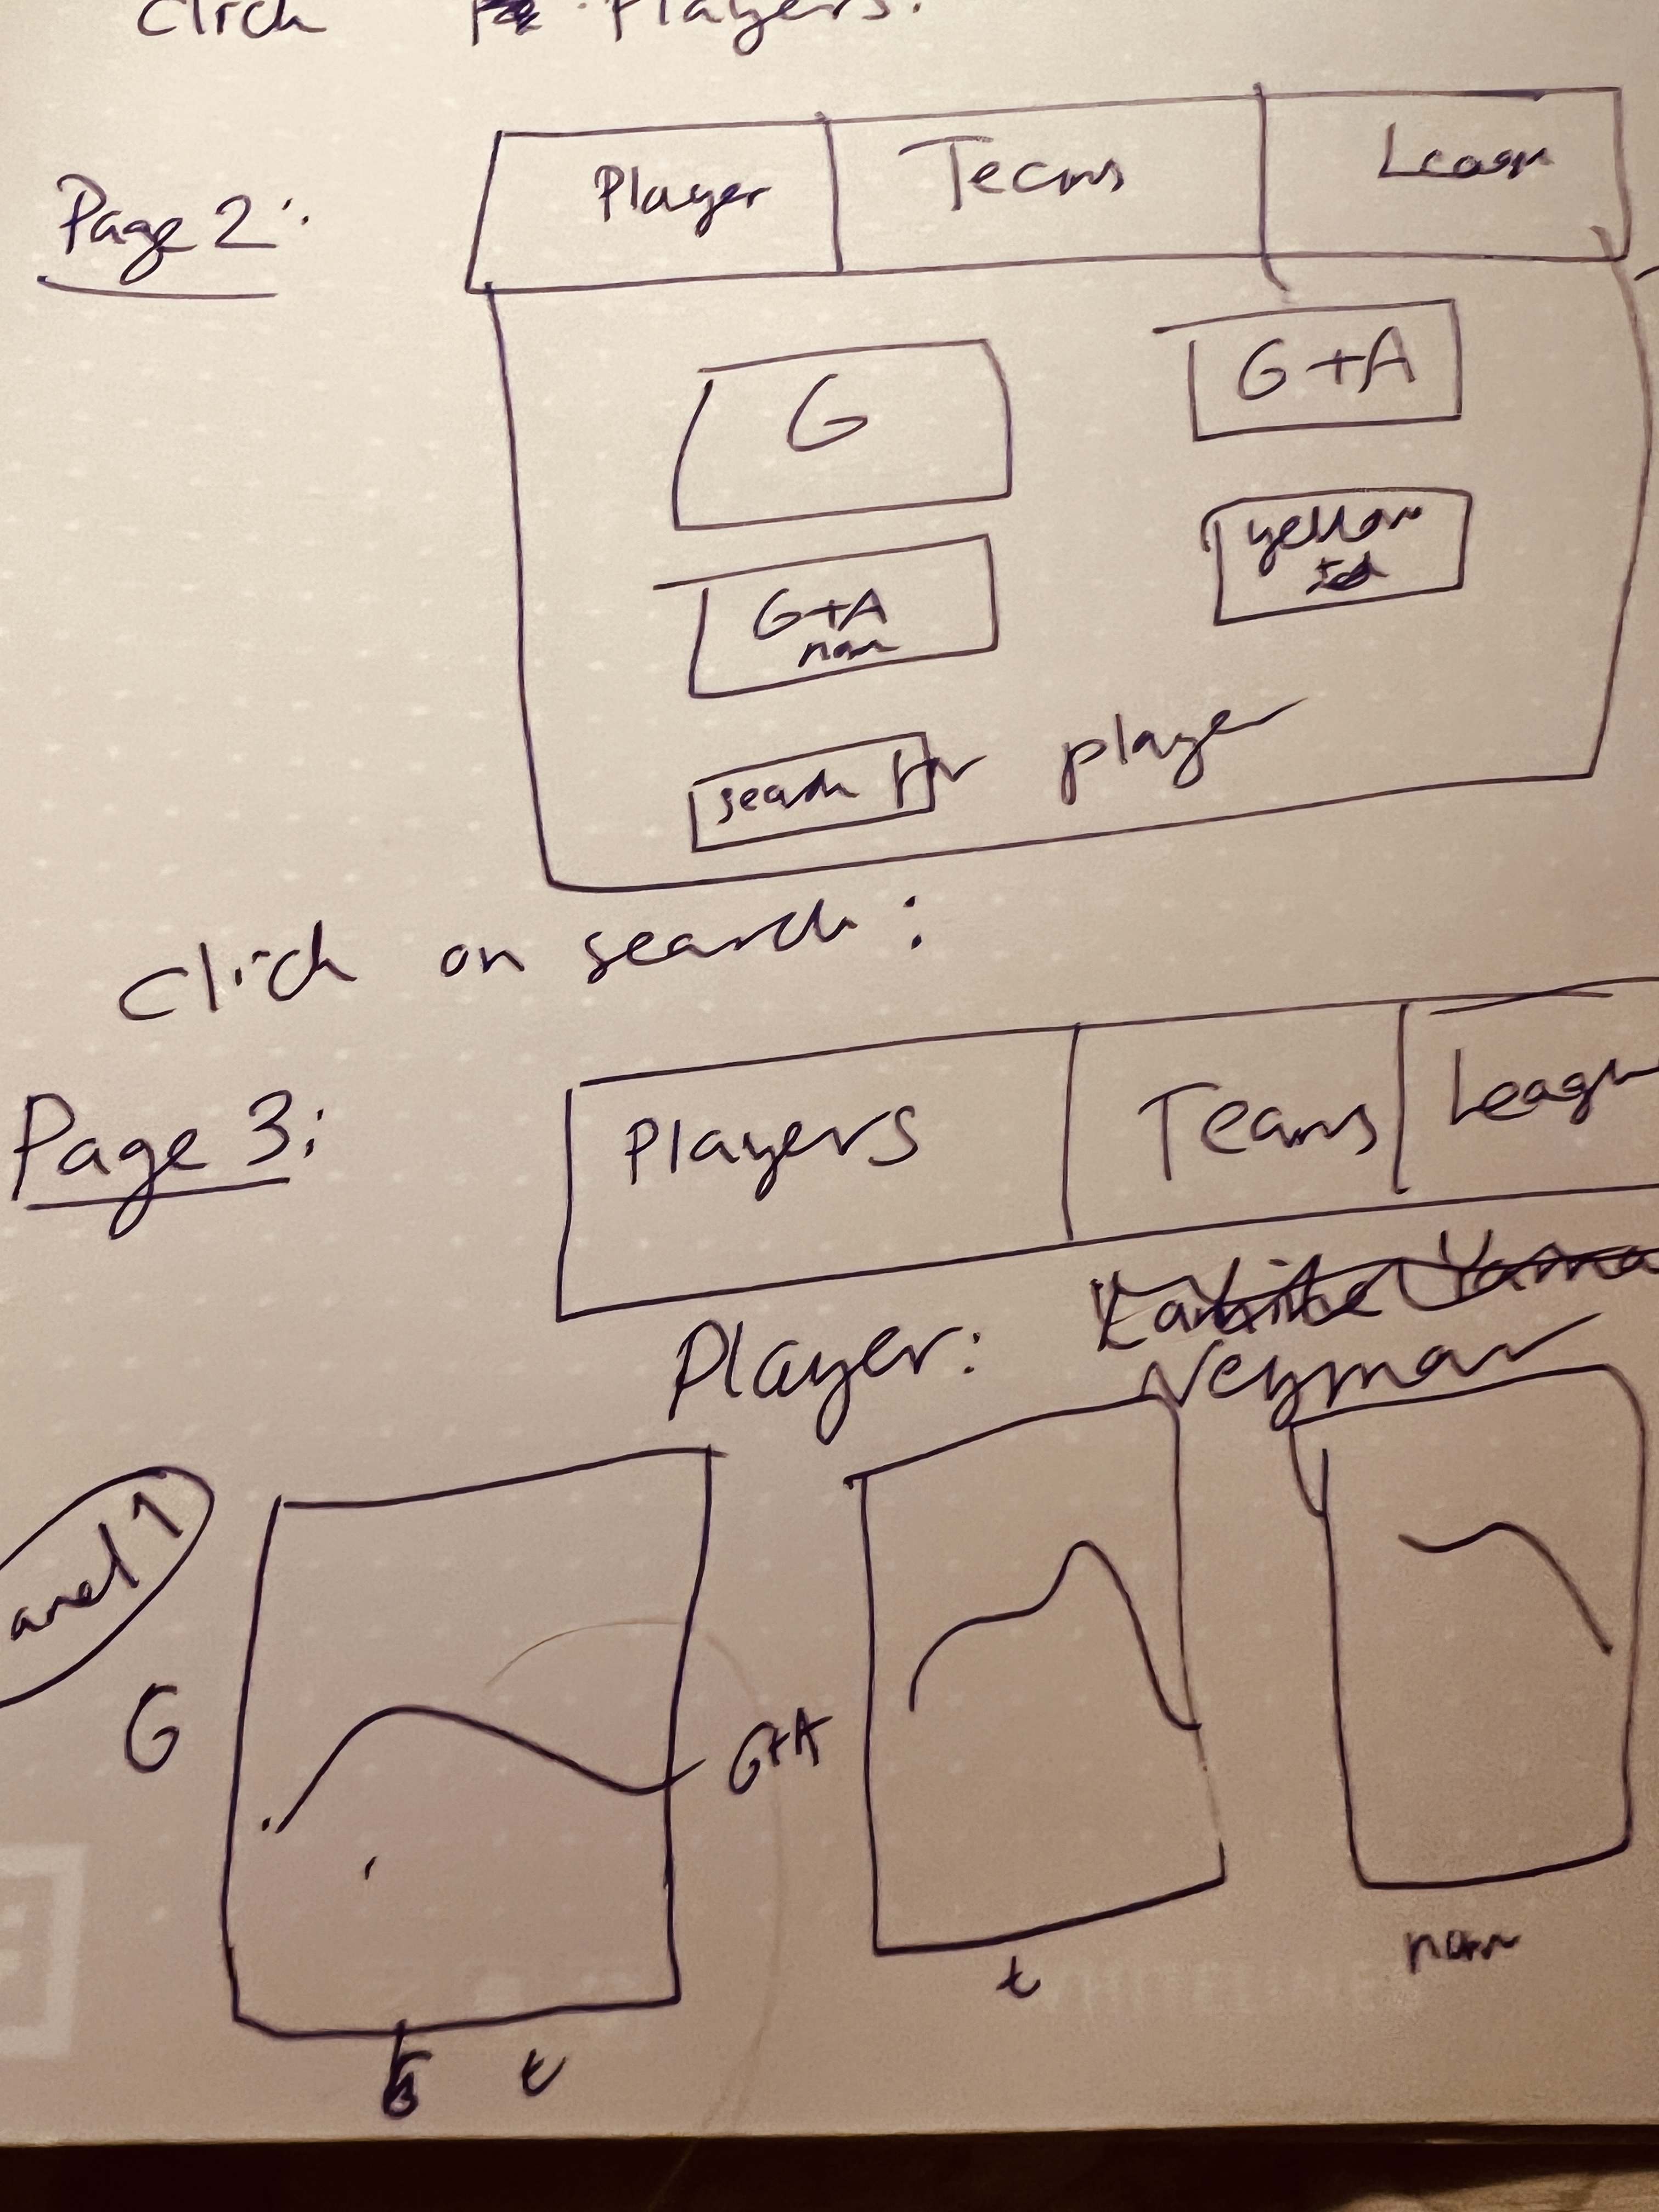 Click Players.
Page 2:
Player Teams Leagu
G G+A
G+A
norm
yellow
red
search for player
Click on search:
Page 3:
Players Teams Leagu
Player: Neymar
anel 1
G
G+A
t t norm